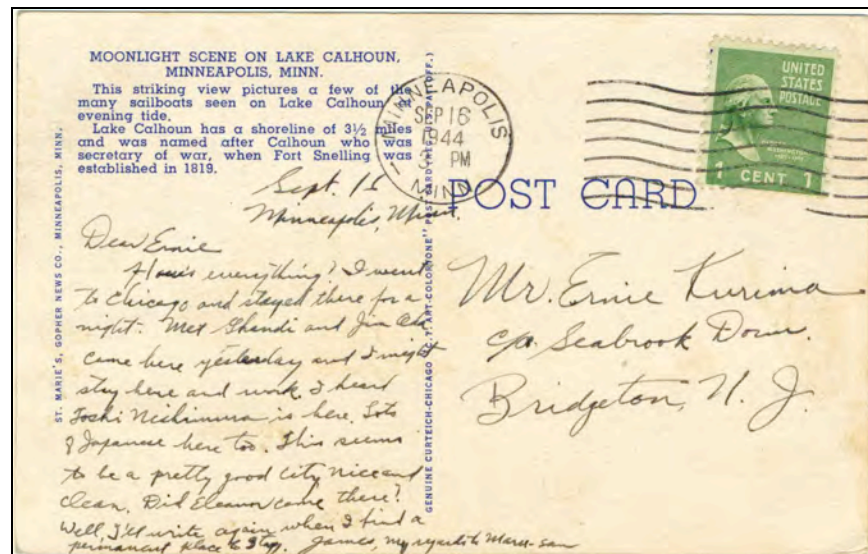 MOONLIGHT SCENE ON LAKE CALHOUN,
MINNEAPOLIS, MINN.
This striking view pictures a few of the
many sailboats seen on Lake Calhoun at
evening tide.
Lake Calhoun has a shoreline of 3½ miles
and was named after Calhoun who was
secretary of war, when Fort Snelling was
established in 1819.
MINNEAPOLIS
SEP 16
1944
PM
MINN.
UNITED
STATES
POSTAGE
1 CENT 1
POST CARD
ST. MARIE'S, GOPHER NEWS CO., MINNEAPOLIS, MINN.
GENUINE CURTEICH-CHICAGO "C. T. ART-COLORTONE" POST CARD (REG. U. S. PAT. OFF.)
Sept. 15
Minneapolis, Minn.
Dear Ernie
How's everything? I went
to Chicago and stayed there for a
night. Met and Jim
came here yesterday and I might
stay here and work. I heard
Toshi Nishimura is here. Lots
of Japanese here too. This seems
to be a pretty good city nice and
clean. Did Eleanor come there?
Well, I'll write again when I find a
permanent place to stay. James, my regards to Maru-san
Mr. Ernie Kurima
c/o Seabrook Dorm.
Bridgeton, N. J.